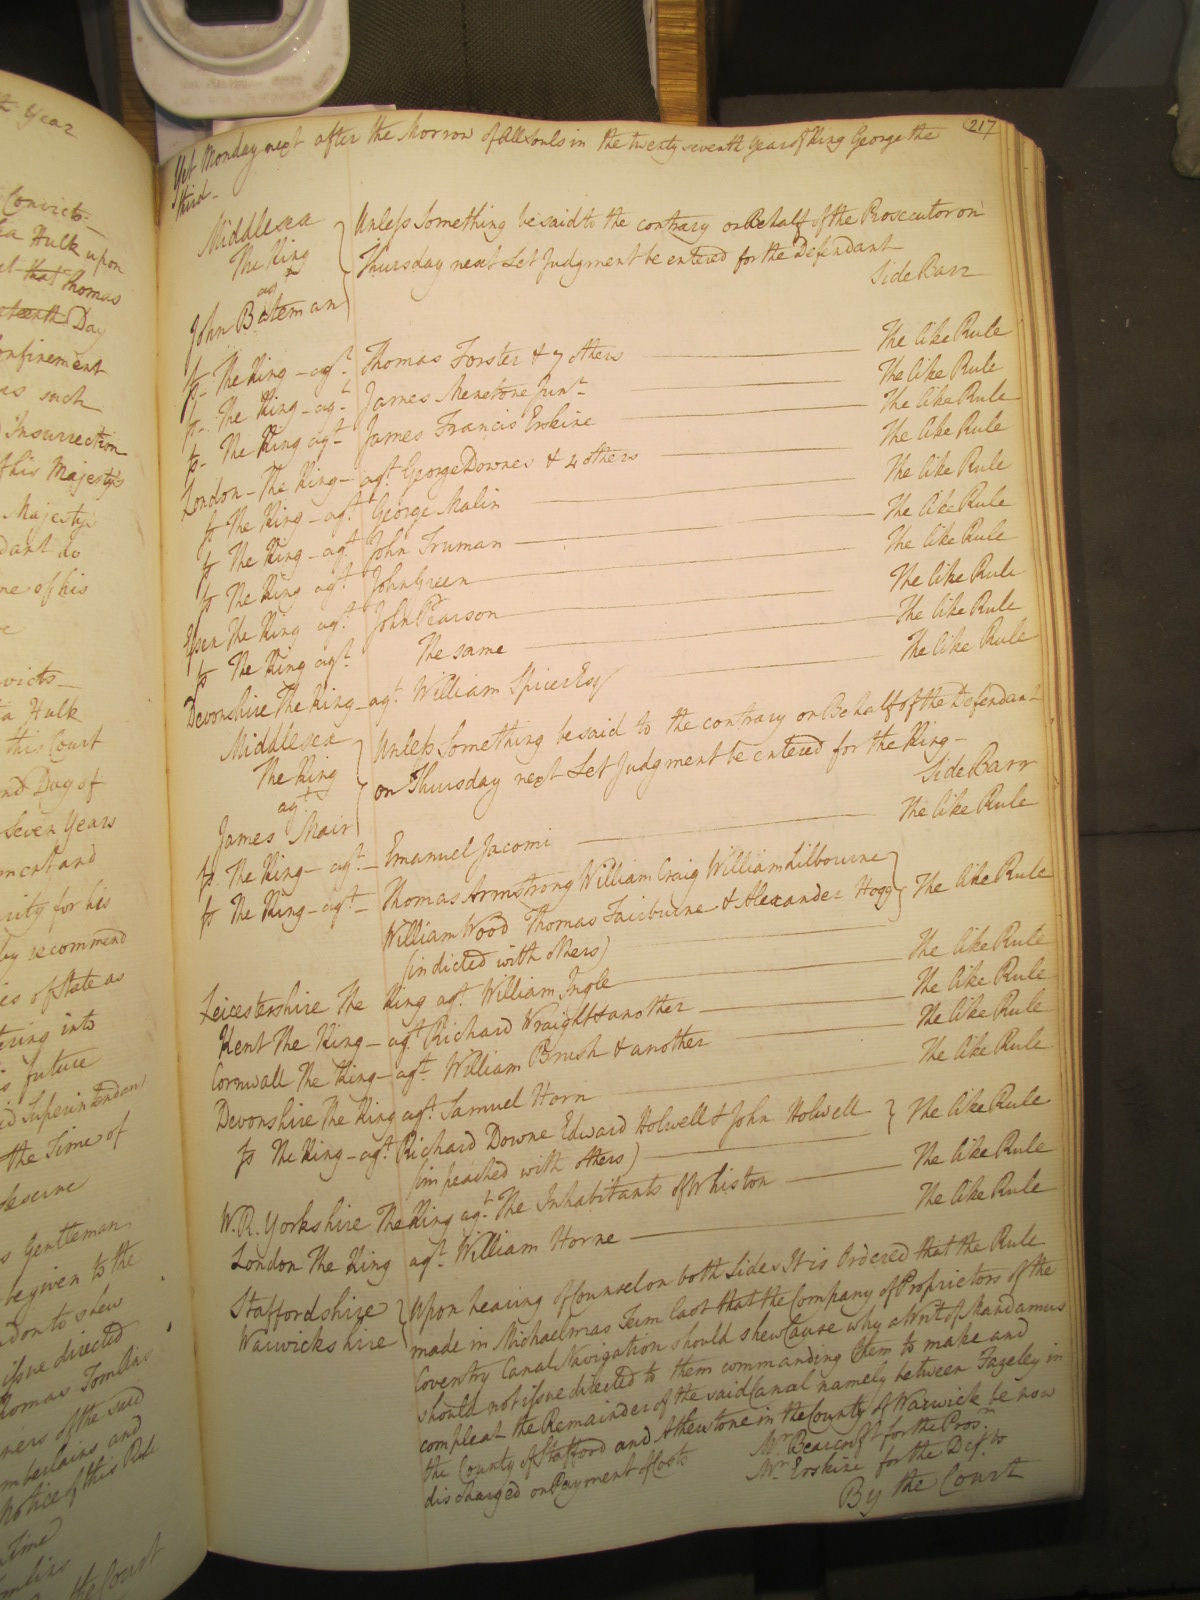 t. Year
Convicts
a Hulk upon
that Thomas
teenth Day
onfinement
as such
Insurrection
f his Majesty's
Majesty's
dant do
me of his
victs
a Hulk
this Court
nd Day of
Seven Years
ment and
urity for his
by recommend
ies of State as
tering into
s future
id Superintendant
the Time of
deserve
s Gentleman
be given to the
ndon to shew
issue directed
Thomas Tomlins
ners of the said
mberlains and
Notice of this Rule
Time
mlins
the Court
217
Yet Monday next after the Morrow of All Souls in the twenty seventh Year of King George the
third
Middlesex
The King
agt
John Bateman
Unless Something be said to the contrary on Behalf of the Prosecutor on
Thursday next Let Judgment be entered for the Defendant
Side Barr
fs The King agt Thomas Forster & 7 others The like Rule
fs The King agt James Menetone Junr The like Rule
fs The King agt James Francis Erskine The like Rule
London The King agt George Downes & 4 others The like Rule
fs The King agt George Malin The like Rule
fs The King agt John Truman The like Rule
fs The King agt John Green The like Rule
Essex The King agt John Pearson The like Rule
fs The King agt The same The like Rule
Devonshire The King agt William Spicer Esqr The like Rule
Middlesex
The King
agt
James Mair
Unless Something be said to the contrary on Behalf of the Defendant
on Thursday next Let Judgment be entered for the King
Side Barr
fs The King agt Emanuel Jacomi The like Rule
fs The King agt Thomas Armstrong William Craig William Lilbourne
William Wood Thomas Fairburne & Alexander Hogg The like Rule
(indicted with others)
Leicestershire The King agt William Ingle The like Rule
Kent The King agt Richard Wraight & another The like Rule
Cornwall The King agt William Brush & another The like Rule
Devonshire The King agt Samuel Horn The like Rule
fs The King agt Richard Downe Edward Holwell & John Holwell The like Rule
(impeached with others)
W. R. Yorkshire The King agt The Inhabitants of Whiston The like Rule
London The King agt William Horne The like Rule
Staffordshire
Warwickshire
Upon hearing of Counsel on both Sides It is Ordered that the Rule
made in Michaelmas Term last that the Company of Proprietors of the
Coventry Canal Navigation should shew Cause why a Writ of Mandamus
should not issue directed to them commanding them to make and
compleat the Remainder of the said Canal namely between Fazeley in
the County of Stafford and Atherstone in the County of Warwick be now
discharged on Payment of Costs
Mr Bearcroft for the Prosr
Mr Erskine for the Defts
By the Court